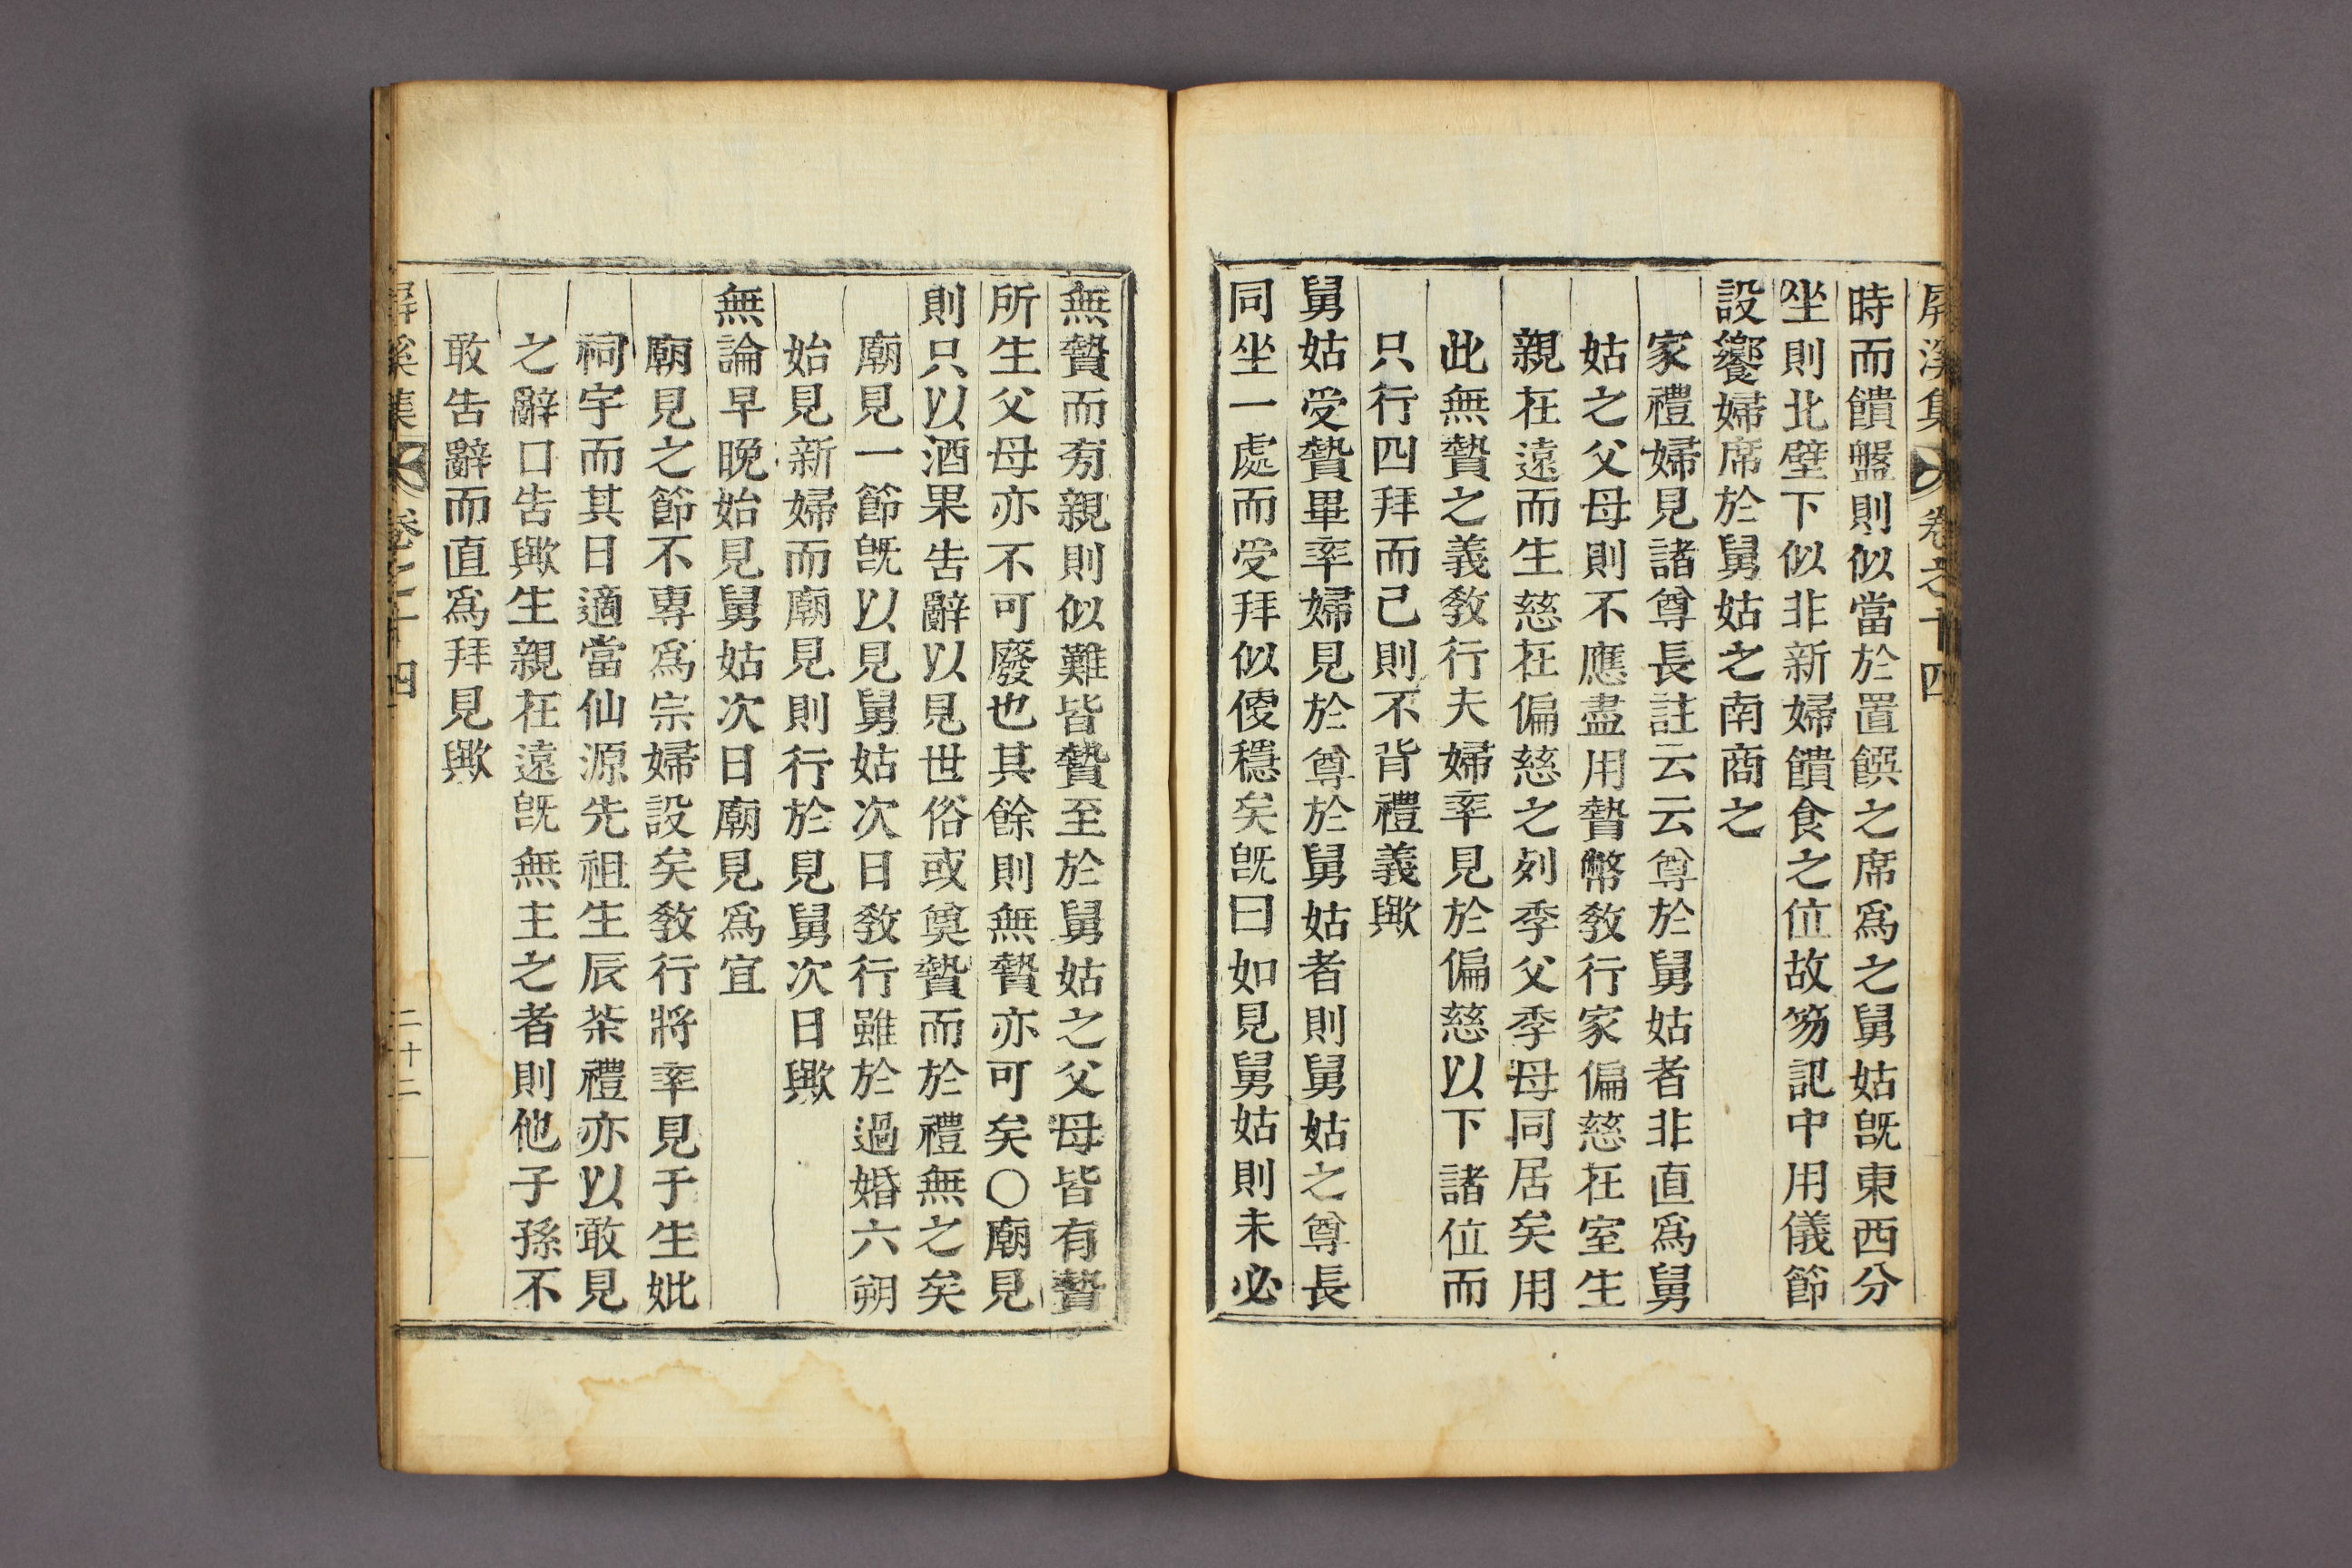 屛溪集 卷之十四
時而饋盤則似當於置饌之席爲之舅姑旣東西分
坐則北壁下似非新婦饋食之位故笏記中用儀節
設饗婦席於舅姑之南商之
家禮婦見諸尊長註云云尊於舅姑者非直爲舅
姑之父母則不應盡用贄幣敎行家偏慈在室生
親在遠而生慈在偏慈之列季父季母同居矣用
此無贄之義敎行夫婦率見於偏慈以下諸位而
只行四拜而已則不背禮義歟
舅姑受贄畢率婦見於尊於舅姑者則舅姑之尊長
同坐一處而受拜似傻穩矣旣曰如見舅姑則未必
無贄而旁親則似難皆贄至於舅姑之父母皆有贄
所生父母亦不可廢也其餘則無贄亦可矣○廟見
則只以酒果告辭以見世俗或奠贄而於禮無之矣
廟見一節旣以見舅姑次日敎行雖於過婚六朔
始見新婦而廟見則行於見舅次日歟
無論早晩始見舅姑次日廟見爲宜
廟見之節不專爲宗婦設矣敎行將率見于生妣
祠宇而其日適當仙源先祖生辰茶禮亦以敢見
之辭口告歟生親在遠旣無主之者則他子孫不
敢告辭而直爲拜見歟
屛溪集 卷之十四 二十二